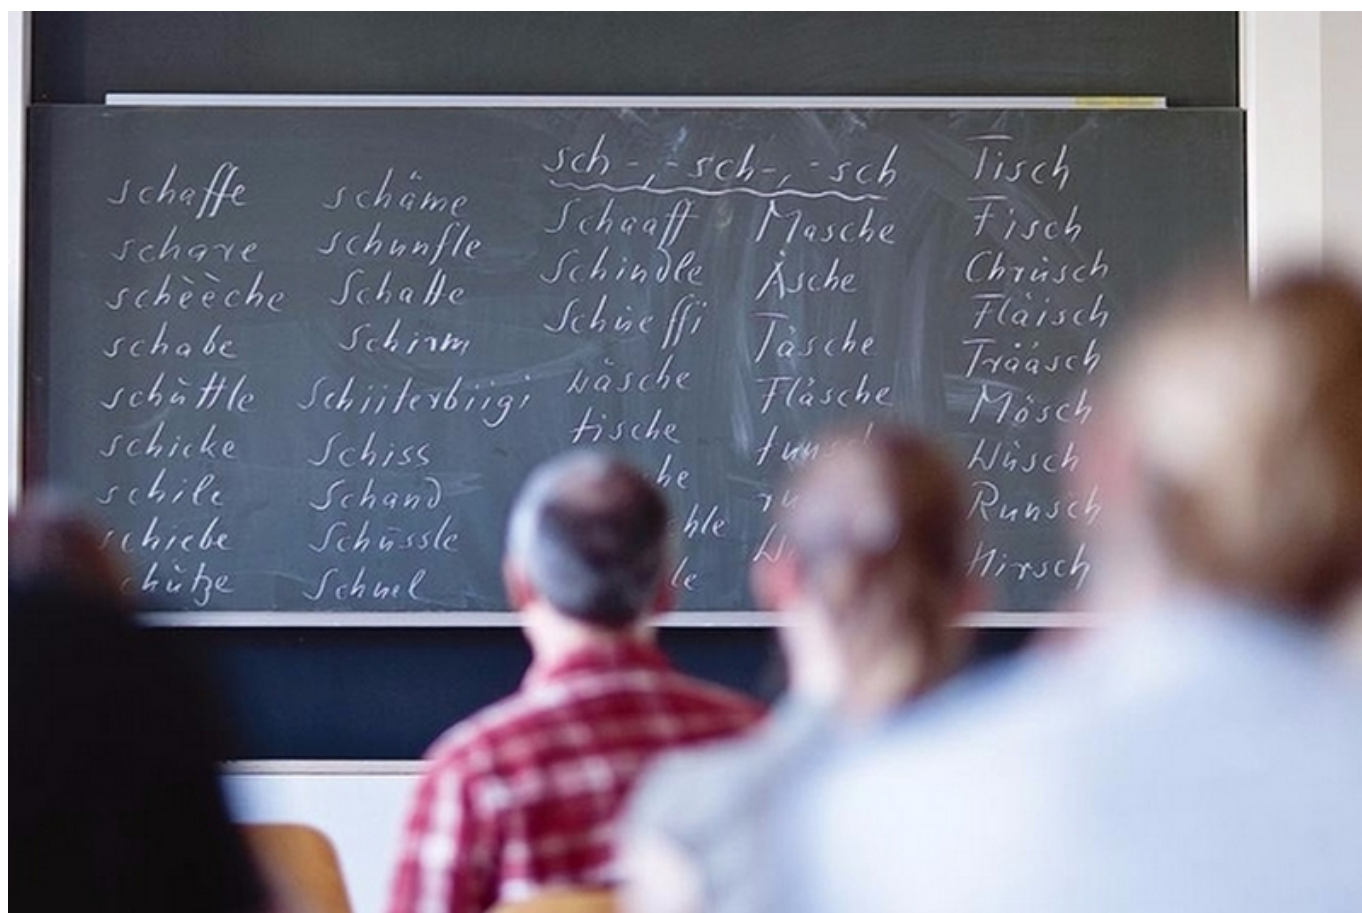 schaffe
schare
schèèche
schabe
schùttle
schicke
schile
schiebe
schäme
schunfle
Schatte
Schirm
Schiiterbiigi
Schiss
Schand
Schüssle
Schnel
sch-, -sch-, -sch
Schaaff
Schindle
wäsche
tische
Masche
Äsche
Täsche
Fläsche
Tisch
Fisch
Chrüsch
Fläisch
Trääsch
Mösch
Wüsch
Runsch
Hirsch